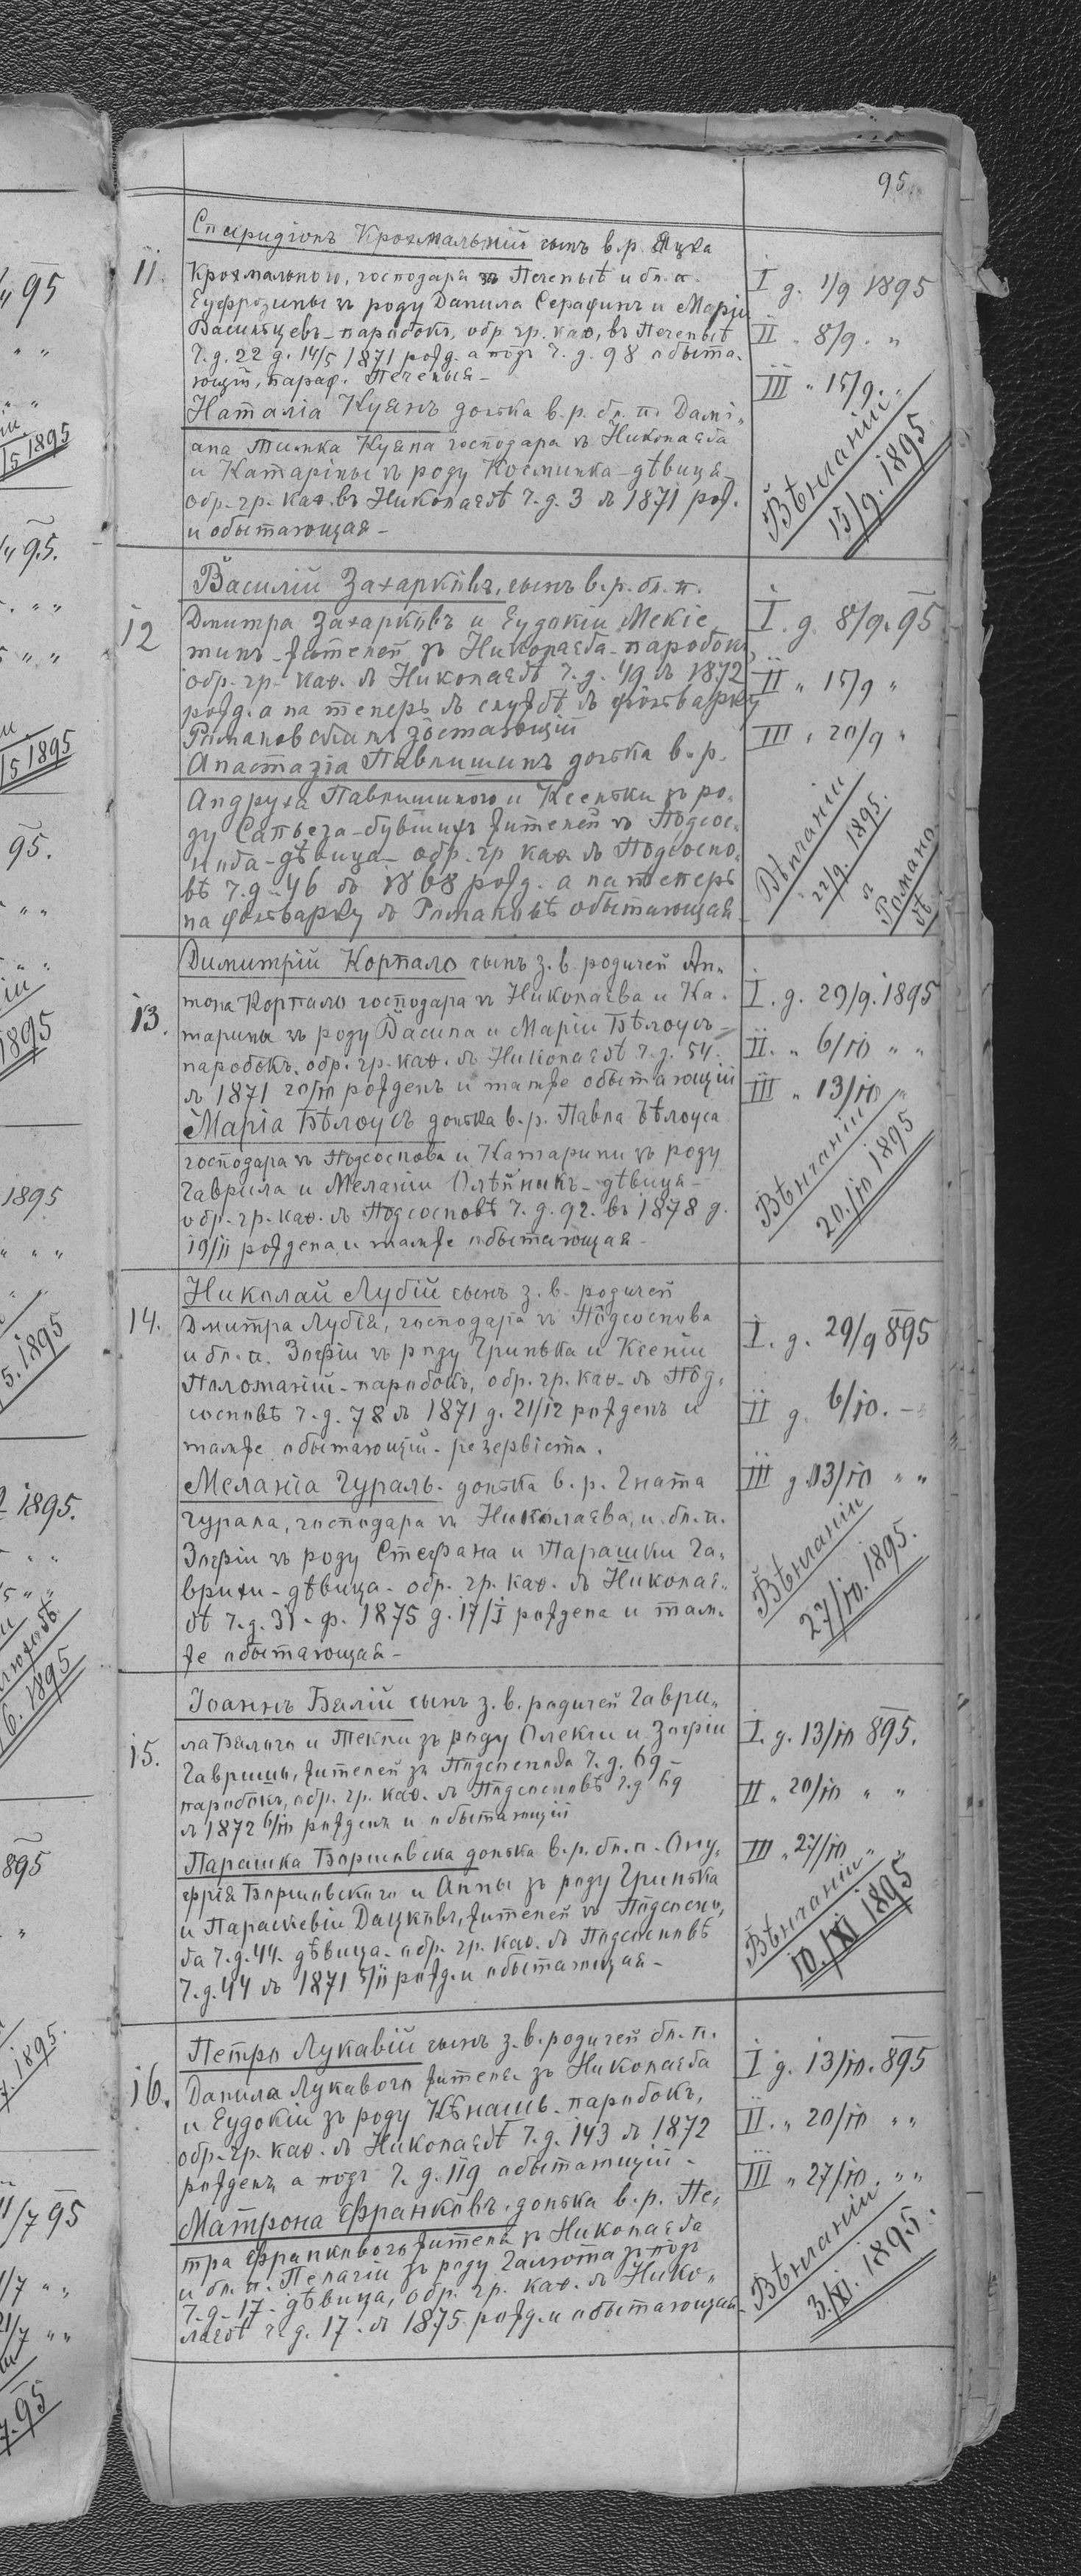 95.
11.
Спиридіонъ Крохмальній сынъ в. р. Яцка
Крохмального, господаря зъ Печеныѣ и бл. п.
Еуфрозины зъ роду Данила Серафинъ и Маріи
Васильцевъ - паробокъ, обр. гр. каѳ. въ Печеныѣ
ч. д. 22 д. 14/5 1871 рожд. а подъ ч. д. 98 обыта-
ющій, параф. Печеныя -
Наталіа Куянъ донька в. р. бл. п. Дамі-
ана Тимка Куяна господаря зъ Николаева
и Катарины зъ роду Косминка - дѣвиця -
обр. гр. каѳ. въ Николаевѣ ч. д. 3 в 1871 рож.
и обытающая -
I д. 1/9 1895
II " 8/9. "
III " 15/9. "
Вѣнчаніи
15/9. 1895
12
Василій Захарковъ, сынъ в. р. бл. п.
Дмитра Захарковъ и Еудокіи Мекіе
тинъ - жителей зъ Николаева - паробокъ,
обр. гр. каѳ. в Николаевѣ ч. д. 49 в 1872
рожд. а на теперь в службѣ в фольварку
Романовскимъ зостающій
Анастазіа Павлишинъ донька в. р.
Андруха Павлишиного и Ксеньки зъ ро-
ду Сапѣга - бувшихъ жителей зъ Подсос-
нова - дѣвица - обр. гр. каѳ. в Подсосно-
вѣ ч. д. 46 в 1868 рожд. а на теперь
на фольварку в Романовѣ обытающая -
I. д. 8/9. 95
II " 15/9 "
III " 20/9 "
Вѣнчаніи
22/9. 1895.
в
Романо-
вѣ
13.
Димитрій Корпало сынъ з. в. родичей Ан-
тона Корпало господара зъ Николаева и Ка-
тарины зъ роду Васила и Маріи Бѣлоусъ -
паробокъ, обр. гр. каѳ. в Николаевѣ ч. д. 54.
в 1871 20/10 рожденъ и тамже обытающій
Маріа Бѣлоусъ донька в. р. Павла Бѣлоуса
господара зъ Подсоснова и Катарини зъ роду
Гаврила и Меланіи Олѣйникъ - дѣвиця -
обр. гр. каѳ. в Подсосновѣ ч. д. 92. въ 1878 д.
19/11 рождена и тамже обытающая -
I. д. 29/9. 1895
II. " 6/10 " "
III " 13/10 "
Вѣнчаніи
20./10 1895
14.
Николай Лубій сынъ з. в. родичей
Дмитра Лубія, господара зъ Подсоснова
и бл. п. Зофіи зъ роду Гринька и Ксеніи
Паломаній - паробокъ, обр. гр. каѳ. в Под-
сосновѣ ч. д. 78 в 1871 д. 21/12 рожденъ и
тамже обытающій - резервіста.
Меланіа Гураль - донька в. р. Гната
Гурала, господара зъ Николаева, и бл. п.
Зофіи зъ роду Стефана и Парашки Га-
врихи - дѣвица - обр. гр. каѳ. в Николае-
вѣ ч. д. 31 - ф. 1875 д. 17/I рождена и там-
же обытающая -
I. д. 29/9 895
II д. 6/10. -
III д. 13/10 " "
Вѣнчаніи
27/10. 1895.
15.
Іоаннъ Балій сынъ з. в. родичей Гаври-
ла Балого и Текли зъ роду Олексы и Зофіи
Гавришъ, жителей зъ Подсоснова ч. д. 69 -
паробокъ, обр. гр. каѳ. в Подсосновѣ ч. д 69
в 1872 6/10 рожденъ и обытающій
Парашка Боршовска донька в. р. бл. п. Ону-
фрія Боршовского и Анны зъ роду Гринька
и Параскевіи Дацковъ, жителей зъ Подсосно-
ва ч. д. 44. дѣвица - обр. гр. каѳ. в Подсосновѣ
ч. д. 44 в 1871 5/11 рожд. и обытающая -
I. д. 13/10 895.
II " 20/10 " "
III " 27/10 " "
Вѣнчаніи
10./XI 1895
16.
Петро Лукавій сынъ з. в. родичей бл. п.
Данила Лукавого жителя зъ Николаева
и Еудокіи зъ роду Кѣнашъ - паробокъ,
обр. гр. каѳ. в Николаевѣ ч. д. 143 в 1872
рожденъ а подъ ч. д. 119 обытающій -
Матрона Франковъ, донька в. р. Пе-
тра Франкового жителя зъ Николаева
и бл. п. Пелагіи зъ роду зъ подъ
ч. д. 17 - дѣвица, обр. гр. каѳ. в Нико-
лаевѣ ч. д. 17 - в 1875 рожд. и обытающая -
I д. 13/10. 895
II. " 20/10 " "
III " 27/10. " "
Вѣнчаніи
3./XI. 1895.